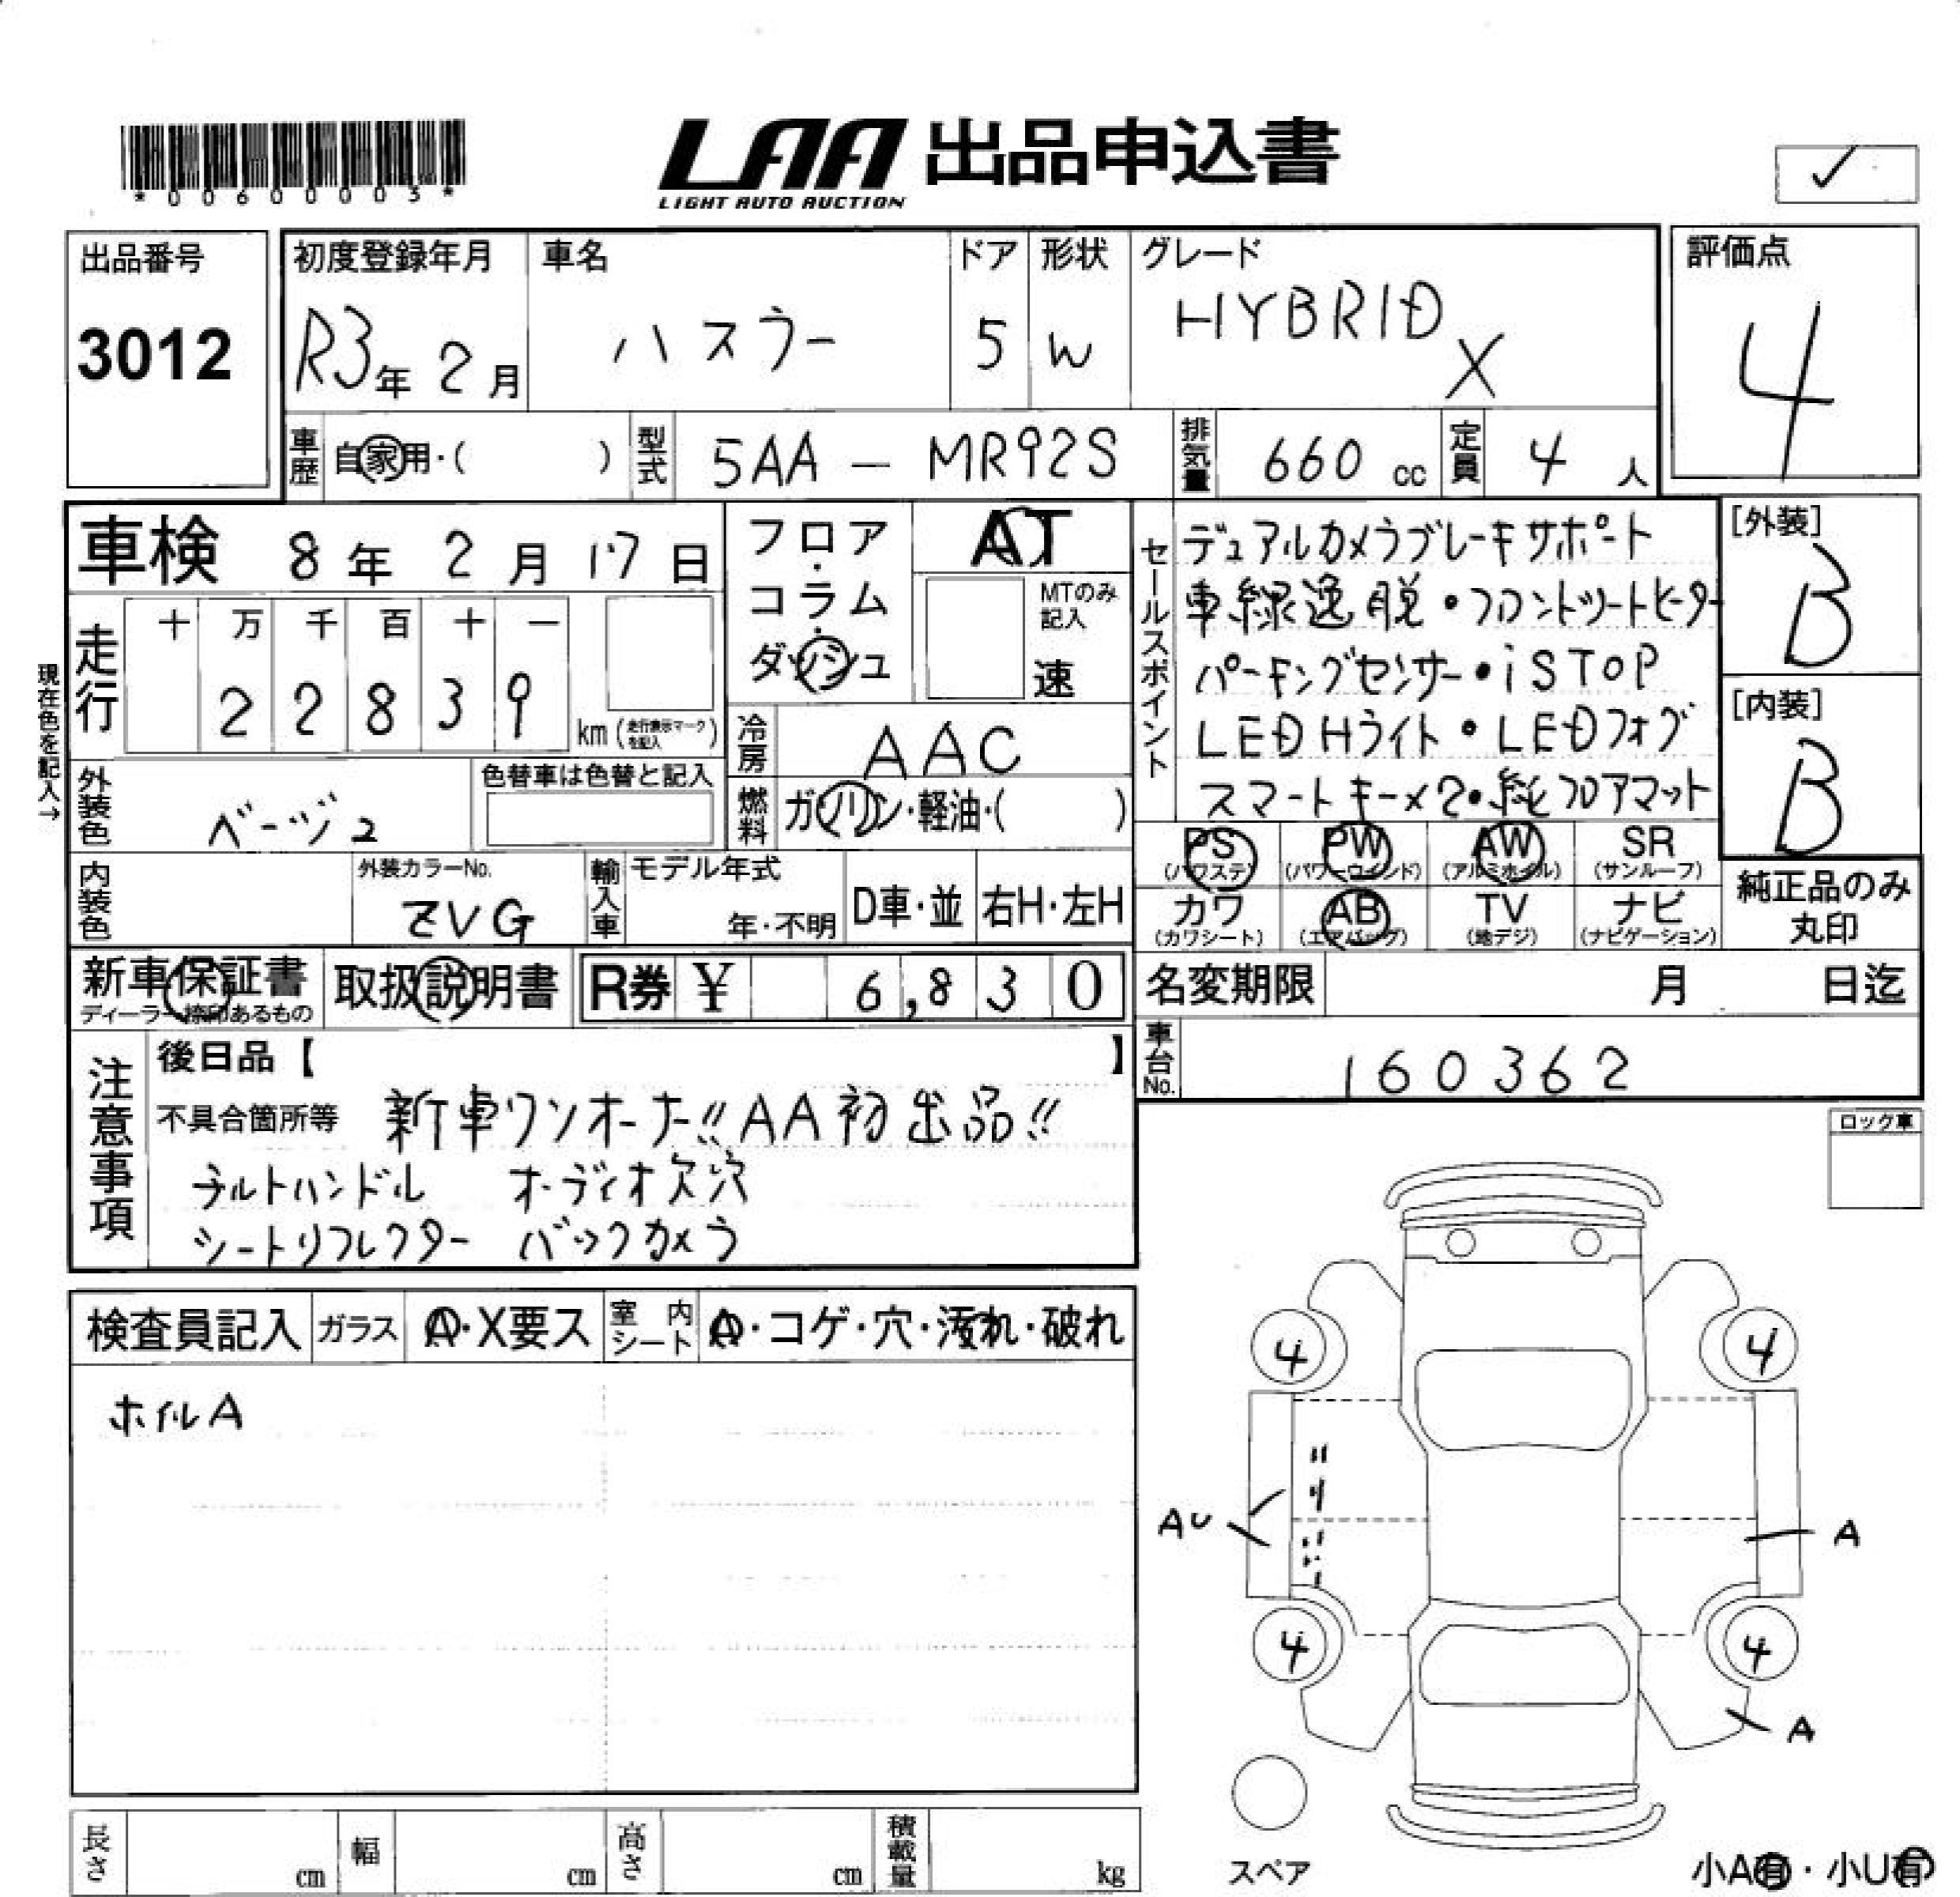 *00600005*
LAA 出品申込書
LIGHT AUTO AUCTION
出品番号
3012
初度登録年月
R3年2月
車名
ハスラー
ドア
5
形状
W
グレード
HYBRID X
評価点
4
車歴 自家用・( )
型式 5AA - MR92S
排気量 660 cc
定員 4 人
車検 8年2月17日
走行 十万千百十一
22839 km(走行表示マークを記入)
現在色を記入→
外装色 ベージュ2
色替車は色替と記入
内装色
外装カラーNo.
ZVG
輸入車 モデル年式
年・不明
D車・並
右H・左H
フロア・コラム・ダッシュ
AT
MTのみ記入
速
冷房 AAC
燃料 ガソリン・軽油・( )
セールスポイント
デュアルカメラブレーキサポート
車線逸脱・フロントシートヒーター
パーキングセンサー・iSTOP
LEDHライト・LEDフォグ
スマートキー×2・純フロアマット
[外装]
B
[内装]
B
PS (パワステ)
PW (パワーウインド)
AW (アルミホイル)
SR (サンルーフ)
カワ (カワシート)
AB (エアバッグ)
TV (地デジ)
ナビ (ナビゲーション)
純正品のみ丸印
新車保証書
ディーラー捺印あるもの
取扱説明書
R券 ¥ 6,830
名変期限 月 日迄
車台No. 160362
注意事項
後日品【 】
不具合箇所等 新車ワンオーナー!! AA初出品!!
チルトハンドル オーディオ欠穴
シートリフレクター バックカメラ
ロック車
検査員記入
ガラス A・X要ス
室内シート A・コゲ・穴・汚れ・破れ
ホイルA
4
4
AU
A
4
4
A
スペア
小A有・小U有
長さ cm
幅 cm
高さ cm
積載量 kg